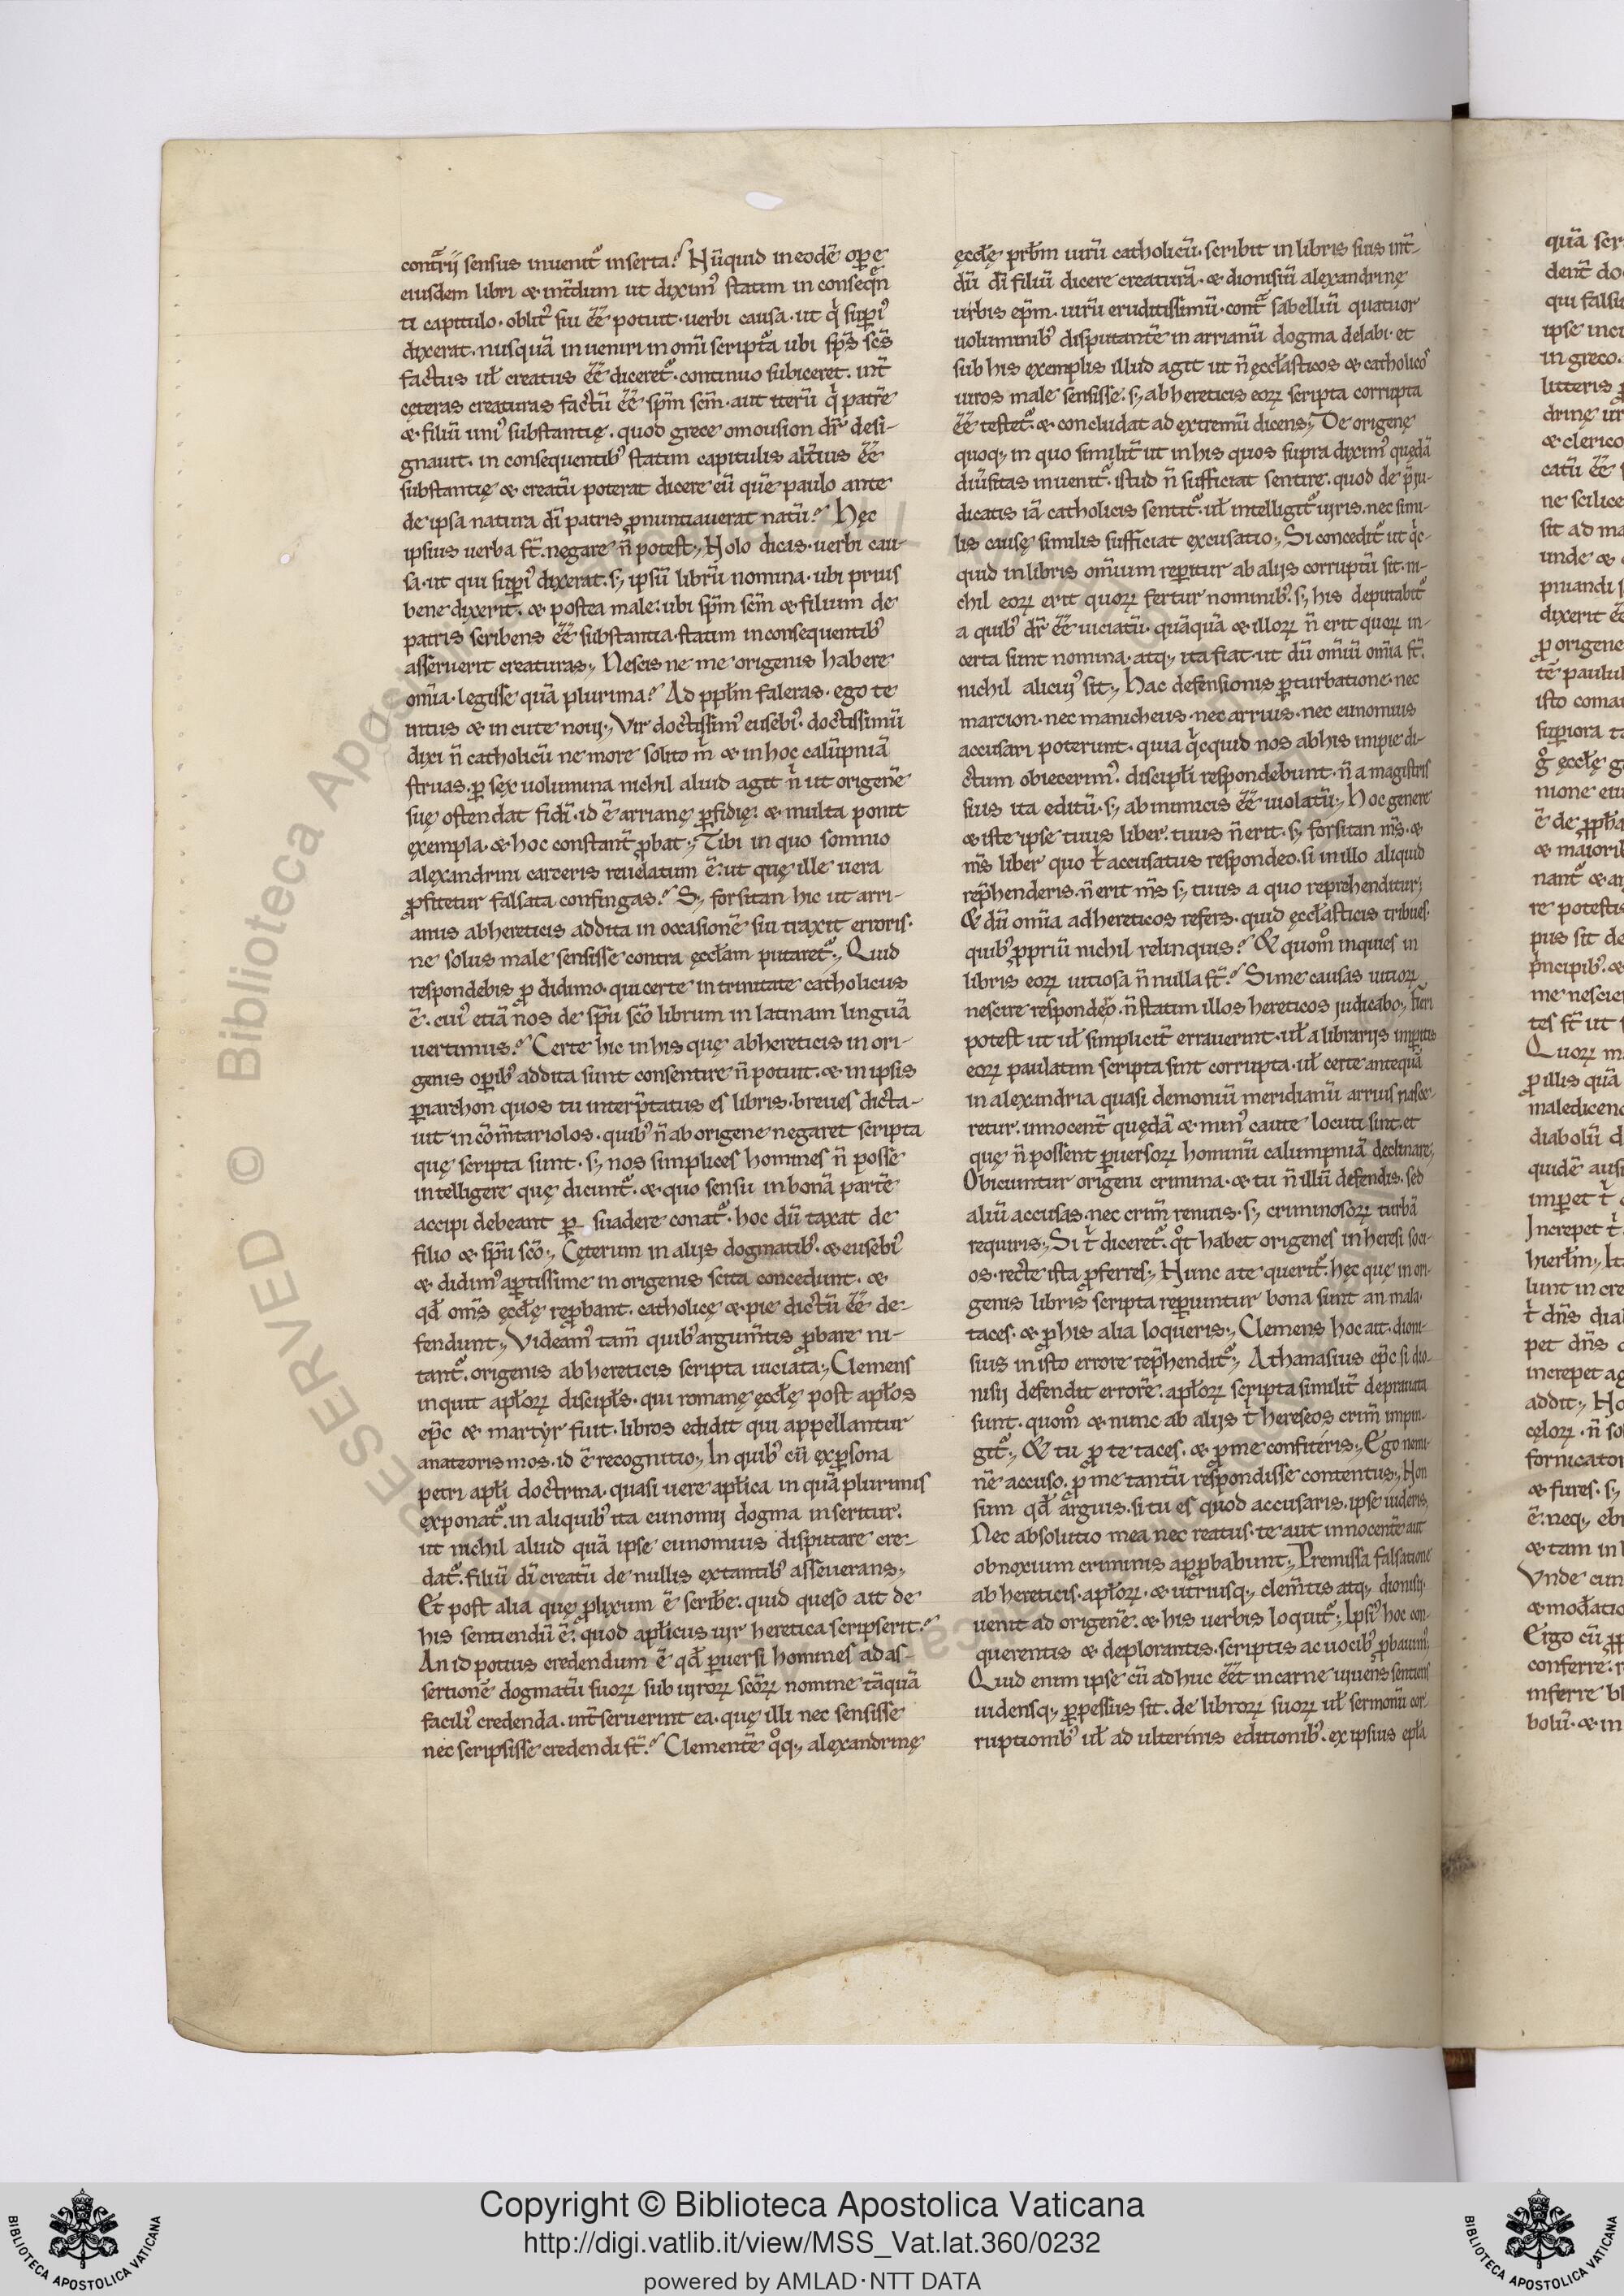 contr̄rij sensus inuenit᷑ inserta? Nūquid in eodē oꝑe
eiusdem libri & int̄dum ut diximꝰ statim in conseq̄n
ti capitulo · oblitꝰ sui ēē potuit · uerbi causa · ut qͥ suꝑiꝰ
dixerat · nusquā inueniri in omī scriptͣa ubi sp̄s sc̄s
factus uł creatus ēē diceret᷑ · continuo subiceret · int̄
cęteras creaturas factū ēē sp̄m sc̄m · aut iterū qͥ patrē
& filiū uniꝰ substantię · quod grece omousion dr̄ desi-
gnauit · in consequentibꝰ statim capitulis alt̄ius ēē
substantię & creatū poterat dicere eū quē paulo ante
de ipsa natura dī patris ꝓnuntiauerat natū? Hęc
ipsius uerba st̄ · negare n̄ potest; Nolo dicas · uerbi cau-
sa · ut qui suꝑiꝰ dixerat · s; ipsū librū nomina · ubi prius
bene dixerit · & postea male: ubi sp̄m sc̄m & filium de
patris scribens ēē substantia · statim in consequentibꝰ
asseruerit creaturas; Nescis ne me origenis habere
om̄ia · legisse quā plurima? Ad pplm̄ faleras · ego te
intus & in cute noui; Vir doctissimꝰ eusebiꝰ · doctissimū
dixi n̄ catholicū ne more solito m̄ & in hoc calūpniā
struas · ꝑ sex uolumina nichil aliud agit nͥ ut origenē
suę ostendat fidī · id ē arrianę ꝑfidię · & multa ponit
exempla · & hoc constant̄ ꝓbat; Tibi in quo somnio
alexandrini carceris reuelatum ē: ut que ille uera
ꝓfitetur falsata confingas? S; forsitan hic ut arri-
anus ab hereticis addita in occasionē sui traxit erroris ·
ne solus male sensisse contra ęccłam putaret᷑; Quid
respondebis ꝓ didimo · qui certe in trinitate catholicus
ē · cuiꝰ etiā nos de sp̄u sc̄o librum in latinam linguā
uertimus? Certe hic in his quę ab hereticis in ori-
genis oꝑibꝰ addita sunt consentire n̄ potuit · & in ipsis
ꝑiarchon quos tu interp̄tatus es libris · breues dicta-
uit in cōm̄tariolos · quibꝰ n̄ ab origene negaret scripta
quę scripta sunt · s; nos simplices homines n̄ posse
intelligere quę dicunt᷑ · & quo sensu in bonā partē
accipi debeant ꝑ suadere conat᷑ · hoc dū taxat de
filio & sp̄u sc̄o; Cęterum in alijs dogmatibꝰ · & eusebiꝰ
& didimꝰ aꝑtissime in origenis scita concedunt · &
qđ om̄s ęccłę reꝓbant · catholicę & pie dictū ēē de-
fendunt; Videamꝰ tam̄ quibꝰ argum̄tis ꝓbare ni-
tant᷑ · origenis ab hereticis scripta uiciata; Clemens
inquit apłoꝝ discipłs · qui romanę ęccłę post apłos
ep̄c & martyr fuit · libros edidit qui appellantur
anateorismos · id ē recognitio; In quibꝰ cū ex ꝑsona
petri apłi doctrina · quasi uere apłica in quā plurimis
exponat᷑ · in aliquibꝰ ita eunomij dogma inseritur ·
ut nichil aliud quā ipse eunomius disputare cre-
dat᷑ · filiū dī creatū de nullis extantibꝰ asseuerans;
Et post alia quę ꝓlixum ē scribe · quid queso ait de
his sentiendū ē: quod apłicus uir heretica scripserit?
An id potius credendum ē qđ ꝑuersi homines ad as-
sertionē dogmatū suoꝝ sub uiroꝝ sc̄oꝝ nomine tāquā
faciliꝰ credenda · int̄seruerint ea · quę illi nec sensisse
nec scripsisse credendi st̄? Clementē qͦq; alexandrinę
ęccłę prb̄m uirū catholicū · scribit in libris suis int̄-
dū dī filiū dicere creaturā · & dionisiū alexandrinę
urbis ep̄m · uirū eruditissimū · contͣ sabelliū quatuor
uoluminibꝰ disputantē in arrianū dogma delabi · et
sub his exemplis illud agit ut n̄ ęccłasticos & catholicoˢ
uiros male sensisse · s; ab hereticis eoꝝ scripta corrupta
ēē testet᷑ · & concludat ad extremū dicens; De origene
quoq; in quo similit̄ ut in his quos supra diximꝰ quędā
diūsitas inuenit᷑ · istud n̄ sufficiat sentire · quod de p̄iu-
dicatis iā catholicis sentit᷑ · uł intelligit᷑ uiris · nec simi-
lis causę similis sufficiat excusatio; Si concedit᷑ ut qͥc-
quid in libris om̄ium reꝑitur ab alijs corruptū sit · ni-
chil eoꝝ erit quoꝝ fertur nominibꝰ · s; his deputabit᷑
a quibꝰ dr̄ ēē uiciatū · quāquā & illoꝝ n̄ erit quoꝝ in-
certa sunt nomina · atq; ita fiat · ut dū om̄iū om̄ia st̄ ·
nichil alicuiꝰ sit; Hac defensionis ꝑturbatione · nec
marcion · nec manicheus · nec arrius · nec eunomius
accusari poterunt · quia qͥcquid nos ab his impie di-
ctum obiecerimꝰ · discipłi respondebunt · n̄ a magistris
suis ita editū · s; ab inimicis ēē uiolatū; Hoc genere
& iste ipse tuus liber · tuus n̄ erit · s; forsitan m̄s · &
m̄s liber quo tͥ accusatus respondeo · si in illo aliquid
rep̄henderis · n̄ erit m̄s s; tuus a quo reprehenditur;
& dū om̄ia ad hereticos refers · quid ęccłasticis tribues ·
quibꝰ ꝓpriū nichil relinquis? & quom̊ inquies in
libris eoꝝ uitiosa n̄ nulla st̄? Si me causas uitioꝝ
nescire respondeo · n̄ statim illos hereticos iudicabo; fieri
potest ut uł simplicit̄ errauerint · uł a librarijs imperitis
eoꝝ paulatim scripta sint corrupta · uł certe antequā
in alexandria quasi demoniū meridianū arrius nasce-
retur · innocent̄ quędā & minꝰ caute locuti sint · et
quę n̄ possent ꝑuersoꝝ hominū calumpniā declinare;
Obiciuntur origeni crimina · & tu n̄ illū defendis · sed
aliū accusas · nec crim̄ renuis · s; criminosoꝝ turbā
requiris; Si tͥ diceret᷑ · qͦt habet origenes in heresi soci-
os · recte ista ꝓferres; Nunc a te querit᷑ · hęc quę in ori-
genis libris scripta reꝑiuntur bona sunt an mala ·
taces · & ꝓ his alia loqueris; Clemens hoc ait · dioni-
sius in isto errore rep̄hendit᷑; Athanasius ep̄c si dio-
nisij defendit errorē · apłoꝝ scripta similit̄ deprauata
sunt · quom̊ & nunc ab alijs tͥ hereseos crim̄ impin-
git᷑; & tu ꝓ te taces · & ꝓ me confiteris; Ego nemi-
nē accuso · ꝓ me tantū respondisse contentus; Non
sum qđ arguis · si tu es quod accusaris · ipse uideris
Nec absolutio mea nec reatus · te aut innocentē aut
obnoxium criminis apꝓbabunt; Premissa falsatione
ab hereticis · apłoꝝ · & utriusq; clem̄tis atq; dionisij ·
uenit ad origenē · & his uerbis loquit᷑; Ipsiꝰ hoc con-
querentis & deplorantis · scriptis ac uocibꝰ ꝓbauimꝰ;
Quid enim ipse cū adhuc ēēt in carne uiuens sentiens
uidensq; ꝑpessus sit · de libroꝝ suoꝝ uł sermonū cor-
ruptionibꝰ uł adulterinis editionibꝰ · ex ipsius epła
Copyright © Biblioteca Apostolica Vaticana
http://digi.vatlib.it/view/MSS_Vat.lat.360/0232
powered by AMLAD·NTT DATA
BIBLIOTECA APOSTOLICA VATICANA
BIBLIOTECA APOSTOLICA VATICANA